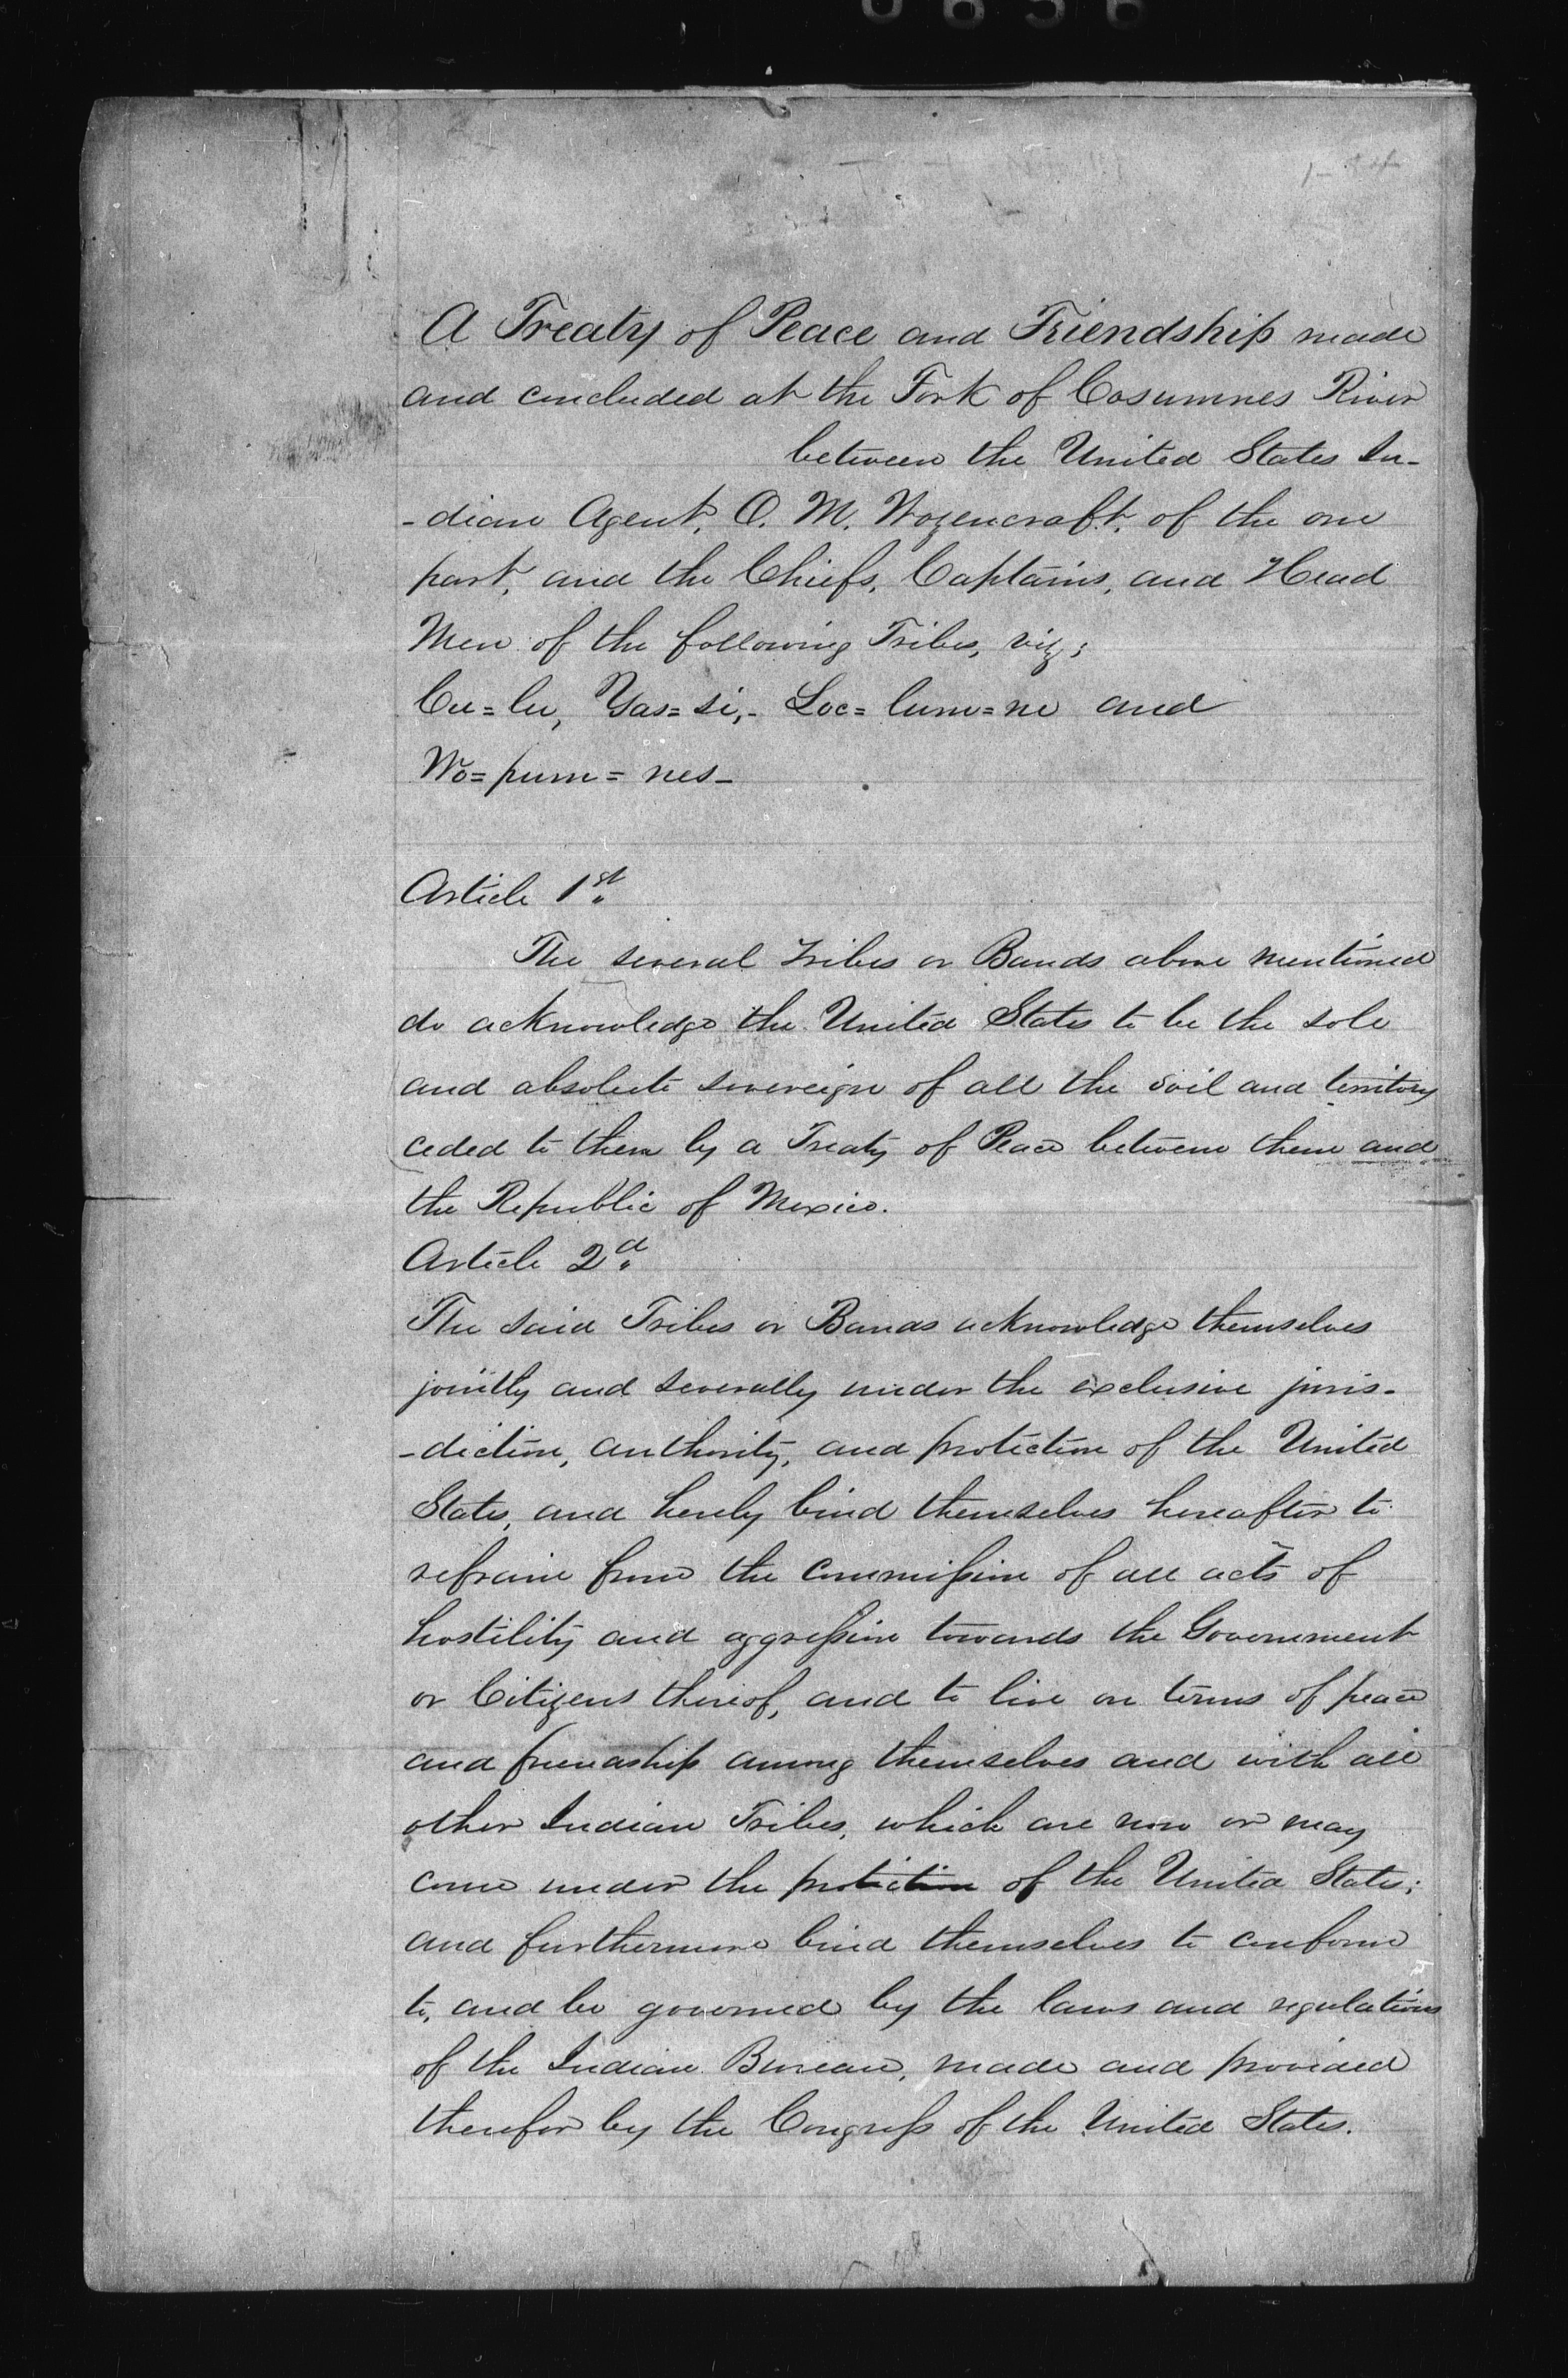 A Treaty of Peace and Friendship made
and concluded at the Fork of Cosumnes River
between the United States In-
-dian Agent, O. M. Wozencraft, of the one
part, and the Chiefs, Captains, and Head
Men of the following Tribes, viz;
Cu=lu, Yas=si,- Loc=lum=ne and
Wo=pum=nes-
Article 1st
The several Tribes or Bands above mentioned
do acknowledge the United States to be the sole
and absolute sovereign of all the soil and territory
ceded to them by a Treaty of Peace between them and
the Republic of Mexico.
Article 2d
The said Tribes or Bands acknowledge themselves
jointly and severally under the exclusive juris-
-diction, authority, and protection of the United
States, and hereby bind themselves hereafter to
refrain from the commission of all acts of
hostility and aggression towards the Government
or Citizens thereof, and to live on terms of peace
and friendship among themselves and with all
other Indian Tribes, which are now or may
come under the protection of the United States;
and furthermore bind themselves to conform
to, and be governed by the laws and regulations
of the Indian Bureau, made and provided
therefor by the Congress of the United States.